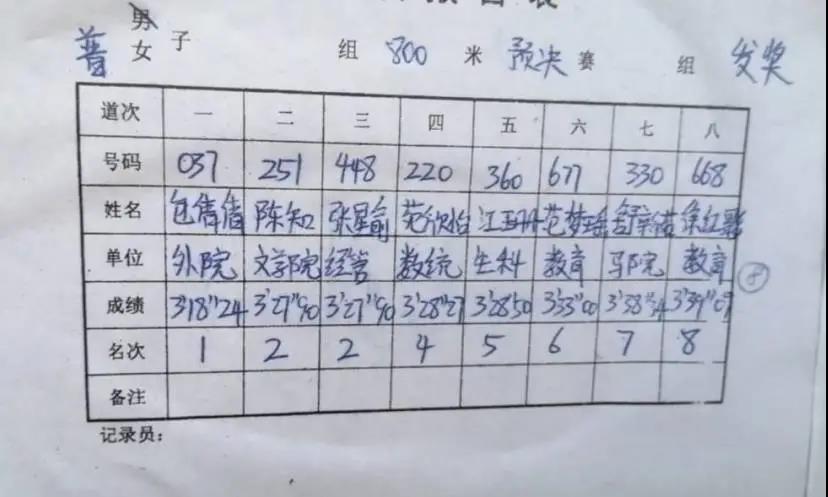 普 男 女 子 组 800 米 预决 赛 组 发奖
道次 一 二 三 四 五 六 七 八
号码 037 251 448 220 360 677 330 668
姓名 包倩倩 陈知 张星俞 范欣怡 江玉丹 范梦瑶 徐红
单位 外院 文学院 经管 数统 生科 教育 马院 教育 ⑧
成绩 3'18"24 3'27"90 3'27"90 3'28"27 3'28"50 3'33"00 3'38"34 3'39"09
名次 1 2 2 4 5 6 7 8
备注
记录员：